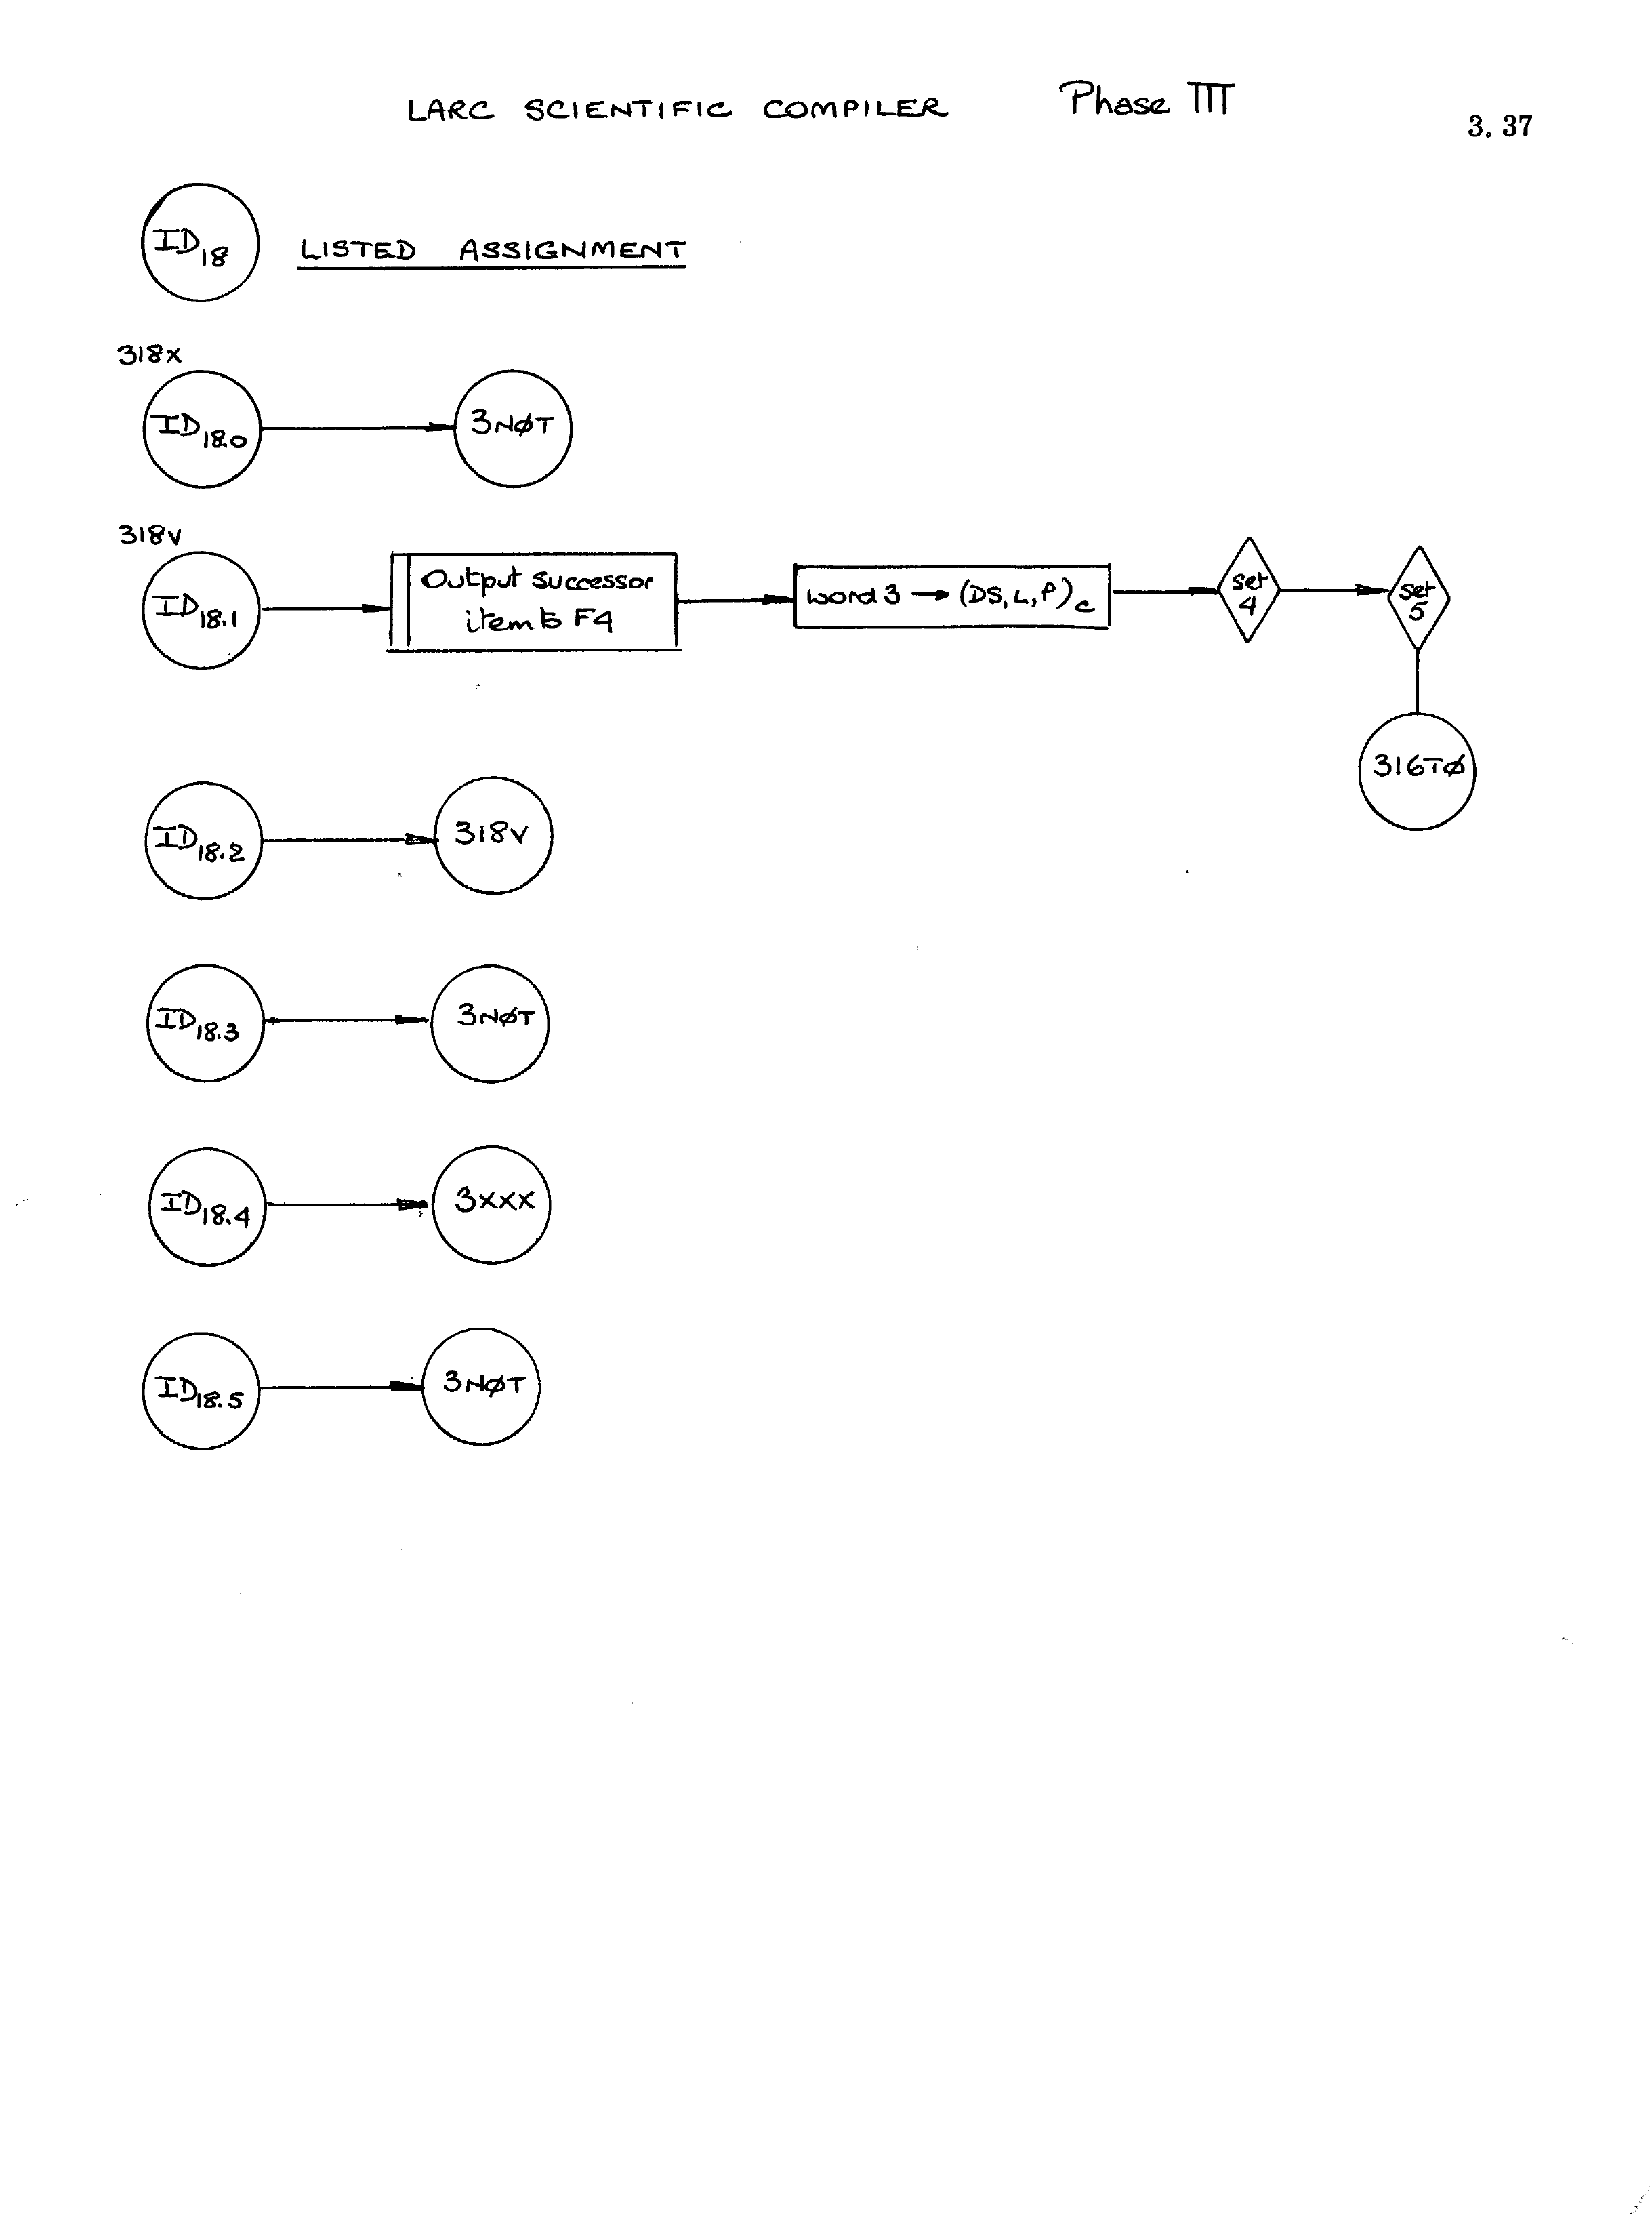 LARC SCIENTIFIC COMPILER Phase III
3.37
ID18 LISTED ASSIGNMENT
318X
ID18.0 3NØT
318V
ID18.1 Output successor
item to F4
word 3 → (DS, L, P)c
set
4
set
5
316TØ
ID18.2 318V
ID18.3 3NØT
ID18.4 3XXX
ID18.5 3NØT